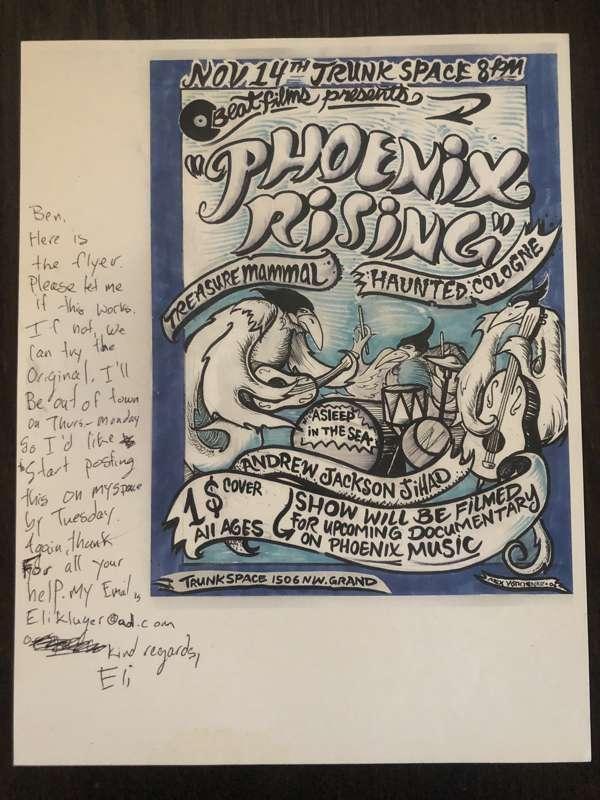 NOV. 14TH TRUNK SPACE 8PM
Beatfilms presents
"PHOENIX
RISING"
TREASURE MAMMAL
HAUNTED COLOGNE
ASLEEP
IN THE SEA
ANDREW JACKSON JIHAD
1$ COVER
All AGES
SHOW WILL BE FILMED
FOR UPCOMING DOCUMENTARY
ON PHOENIX MUSIC
TRUNKSPACE 1506 N.W. GRAND
Ben,
Here is
the flyer.
Please let me
if this works.
If not, we
can try the
Original. I'll
Be out of town
on Thurs-monday
So I'd like
Start posting
this on myspace
by Tuesday.
Again, thank
For all your
help. My Email is
Elikluger@aol.com
Kind regards,
Eli